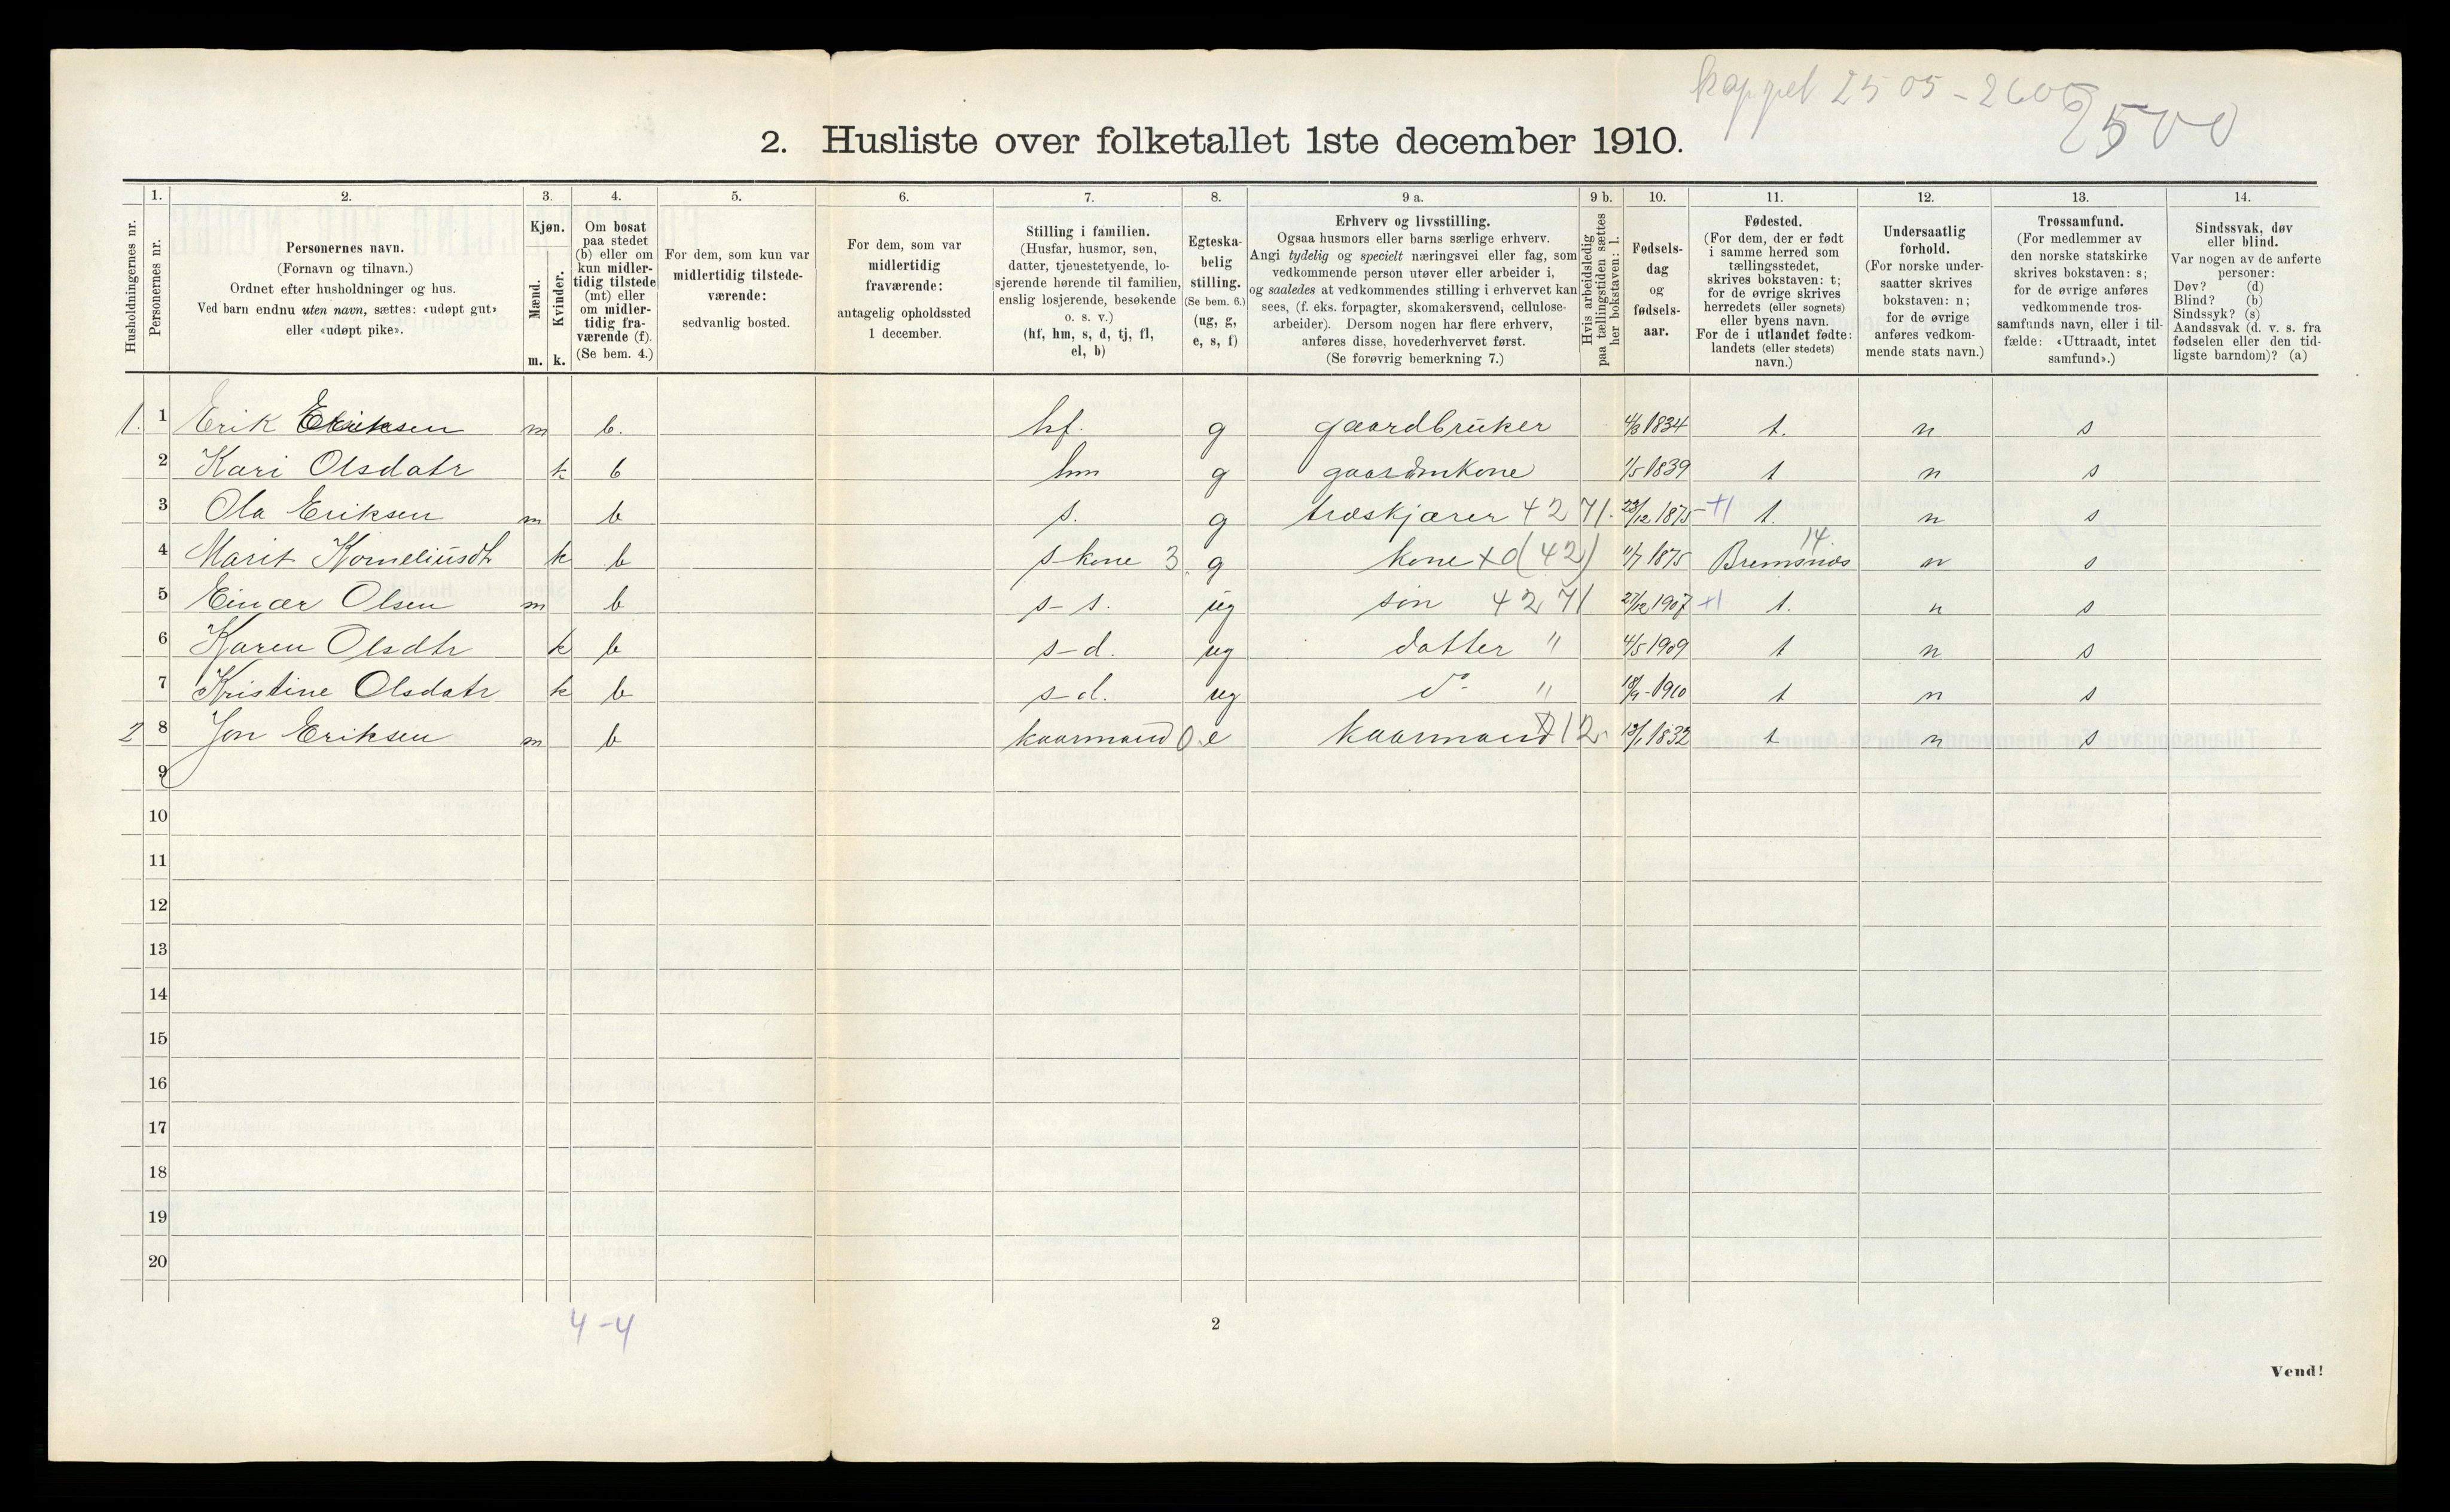 koppel 2505-260
2500
2. Husliste over folketallet 1ste december 1910.
1. 2. 3. 4. 5. 6. 7. 8. 9 a. 9 b. 10. 11. 12. 13. 14.
Husholdningernes nr.
Personernes nr.
Personernes navn.
(Fornavn og tilnavn.)
Ordnet efter husholdninger og hus.
Ved barn endnu uten navn, sættes: «udøpt gut»
eller «udøpt pike».
Kjøn.
Mænd.
m.
Kvinder.
k.
Om bosat
paa stedet
(b) eller om
kun midler-
tidig tilstede
(mt) eller
om midler-
tidig fra-
værende (f).
(Se bem. 4.)
For dem, som kun var
midlertidig tilstede-
værende:
sedvanlig bosted.
For dem, som var
midlertidig
fraværende:
antagelig opholdssted
1 december.
Stilling i familien.
(Husfar, husmor, søn,
datter, tjenestetyende, lo-
sjerende hørende til familien,
enslig losjerende, besøkende
o. s. v.)
(hf, hm, s, d, tj, fl,
el, b)
Egteska-
belig
stilling.
(Se bem. 6.)
(ug, g,
e, s, f)
Erhverv og livsstilling.
Ogsaa husmors eller barns særlige erhverv.
Angi tydelig og specielt næringsvei eller fag, som
vedkommende person utøver eller arbeider i,
og saaledes at vedkommendes stilling i erhvervet kan
sees, (f. eks. forpagter, skomakersvend, cellulose-
arbeider). Dersom nogen har flere erhverv,
anføres disse, hovederhvervet først.
(Se forøvrig bemerkning 7.)
Hvis arbeidsledig
paa tællingstiden sættes
her bokstaven: l.
Fødsels-
dag
og
fødsels-
aar.
Fødested.
(For dem, der er født
i samme herred som
tællingsstedet,
skrives bokstaven: t;
for de øvrige skrives
herredets (eller sognets)
eller byens navn.
For de i utlandet fødte:
landets (eller stedets)
navn.)
Undersaatlig
forhold.
(For norske under-
saatter skrives
bokstaven: n;
for de øvrige
anføres vedkom-
mende stats navn.)
Trossamfund.
(For medlemmer av
den norske statskirke
skrives bokstaven: s;
for de øvrige anføres
vedkommende tros-
samfunds navn, eller i til-
fælde: «Uttraadt, intet
samfund».)
Sindssvak, døv
eller blind.
Var nogen av de anførte
personer:
Døv? (d)
Blind? (b)
Sindssyk? (s)
Aandssvak (d. v. s. fra
fødselen eller den tid-
ligste barndom)? (a)
1. 1 Erik Eriksen m b. hf. g gaardbruker 1834 t. n s
2 Kari Olsdatr k b hm g 1/5 1839 t n s
3 Ola Eriksen m b s. g træskjærer 42 71. 23/12 1875 +1 t. n s
4 Marit Korneliusdt k b s-kone 3 g kone +0(42) 11/7 1875 Bremsnæs 14 n s
5 Einar Olsen m b s-s. ug søn 42 71 27/12 1907 +1 t. n s
6 Karen Olsdtr k b s-d. ug datter " 4/5 1909 t n s
7 Kristine Olsdatr k b s-d. ug do " 18/9-1910 t n s
2 8 Jon Eriksen m b kaarmand 0 e kaarmand 12. 13/1 1832 t n s
9
10
11
12
13
14
15
16
17
18
19
20
4-4
2
Vend!